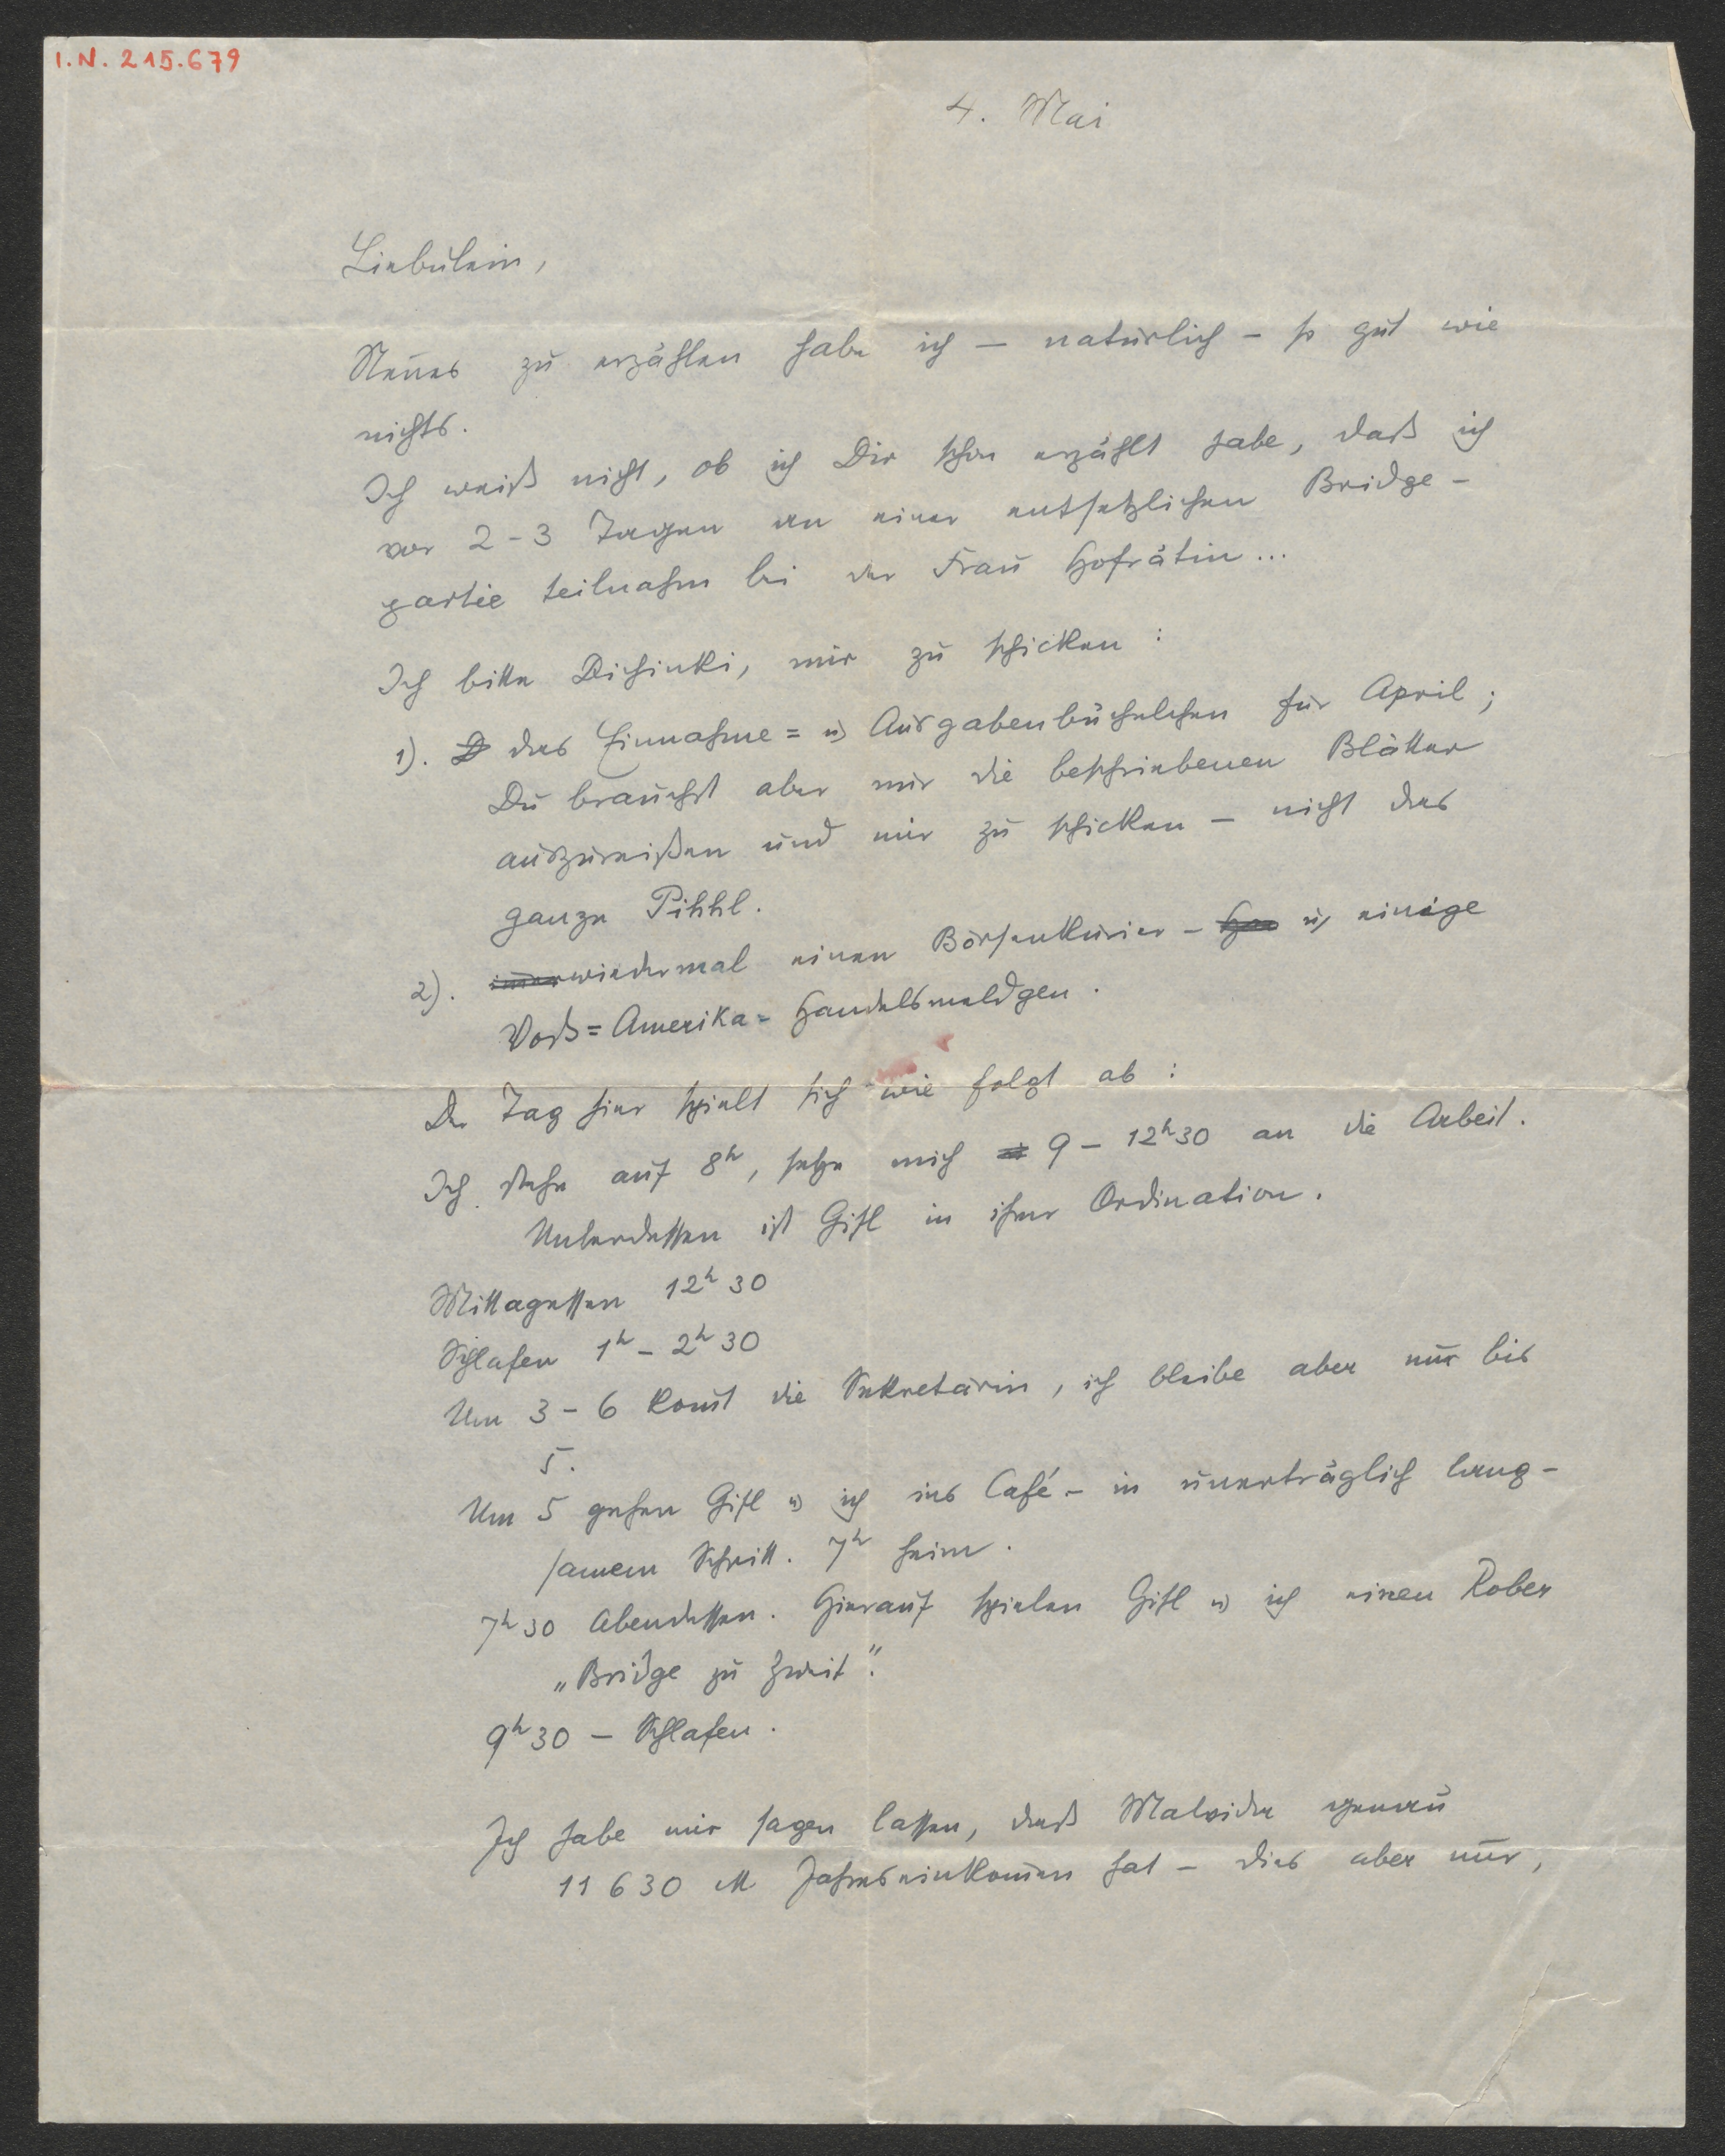 I.N. 215.679
4. Mai
Liebulein,
Neues zu erzählen habe ich – natürlich – so gut wie
nichts.
Ich weiß nicht, ob ich Dir schon erzählt habe, daß ich
vor 2-3 Tagen an einer entsetzlichen Bridge-
partie teilnahm bei der Frau Hofrätin...
Ich bitte Dichinki, mir zu schicken:
1). das Einnahme= u Ausgabenbüchelchen für April;
Du brauchst aber nur die beschriebenen Blätter
auszureißen und mir zu schicken – nicht das
ganze Pihhl.
2). wiedermal einen Börsenkurier – u einige
Voß=Amerika=Handelsmeldgen.
Der Tag hier spielt sich wie folgt ab:
Ich stehe auf 8h, setze mich 9 – 12h30 an die Arbeit.
Unterdessen ist Gisl in ihrer Ordination.
Mittagessen 12h 30
Schlafen 1h – 2h 30
Um 3 – 6 kom̅t die Sekretärin, ich bleibe aber nur bis
5.
Um 5 gehen Gisl u ich ins Café – in unerträglich lang-
samem Schritt. 7h heim.
7h 30 Abendessen. Hierauf spielen Gisl u ich einen Rober
„Bridge zu Zweit".
9h 30 – Schlafen.
Ich habe mir sagen lassen, daß Malvida genau
11 630 M Jahreseinkom̅en hat – dies aber nur,